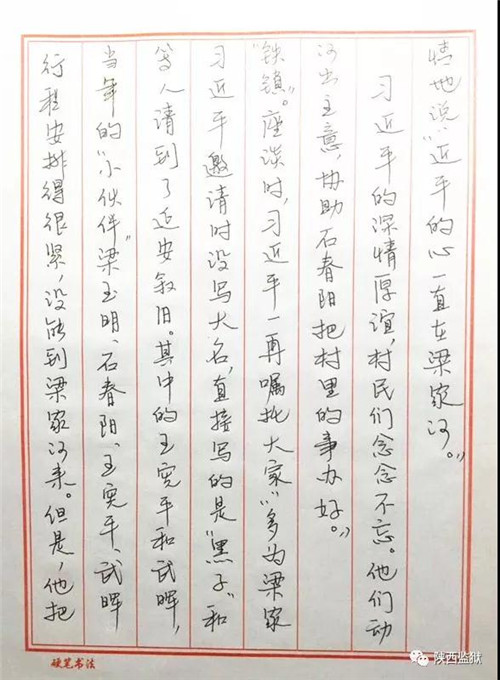 行程安排得很紧，没能到梁家河来。但是，他把
当年的“小伙伴”梁玉明、石春阳、王宪平、武晖
等人请到了延安叙旧。其中的王宪平和武晖，
习近平邀请时没写大名，直接写的是“黑子”和
“铁锁”。座谈时，习近平一再嘱托大家：“多为梁家
河出主意，协助石春阳把村里的事办好。”
习近平的深情厚谊，村民们念念不忘。他们动
情地说：“近平的心一直在梁家河。”
硬笔书法
陕西监狱